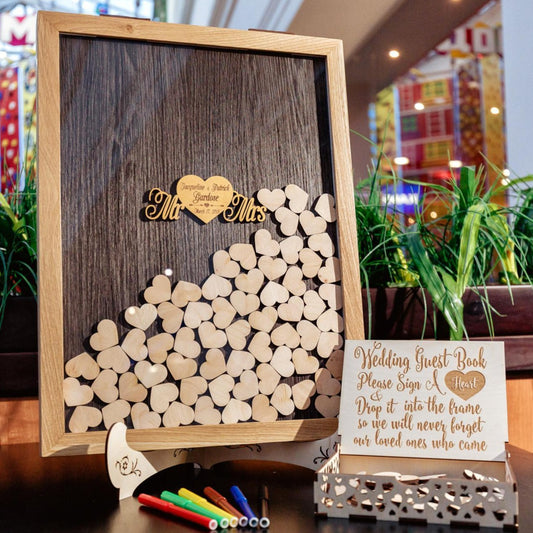 Jacqueline & Patrick
Gardose
Mr
Mrs
Wedding Guest Book
Please Sign A Heart
&
Drop it into the frame
so we will never forget
our loved ones who came